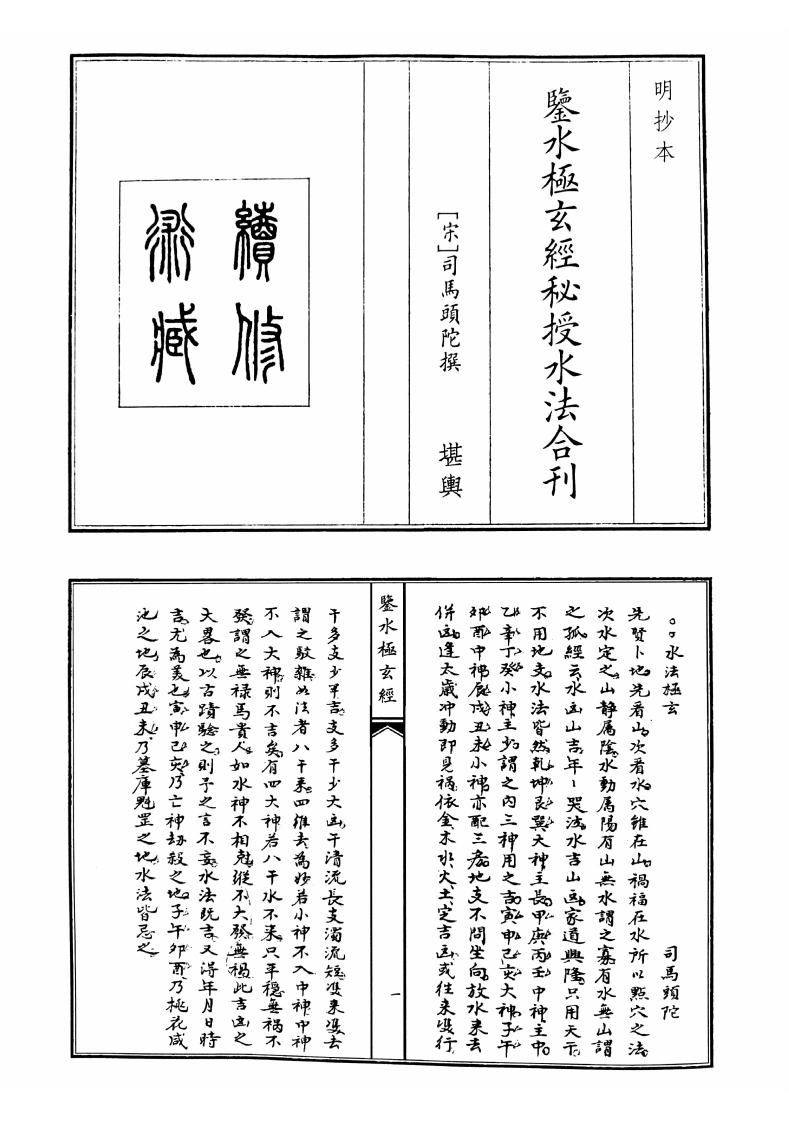 明抄本
鑒水極玄經秘授水法合刊
[宋]司馬頭陀撰 堪輿
續修
術藏
水法極玄 司馬頭陀
先賢卜地先看山次看水穴雖在山禍福在水所以點穴之法
次水定之山靜属陰水動属陽有山無水謂之寡有水無山謂
之孤經云水凶山吉年〻哭泣水吉山凶家道興隆只用天干
不用地支水法皆然乾坤艮巽大神主長甲庚丙壬中神主中
乙辛丁癸小神主少謂之內三神用之吉寅申巳亥大神子午
卯酉中神辰戌丑未小神亦配三房地支不問坐向放水来去
併凶逢太歲冲動即見禍依金木水火土定吉凶或往来溪行
鑒水極玄經
一
干多支少平吉支多干少大凶干清流長支濁流短溪来溪去
謂之駁雜如法者八干来四維去為妙若小神不入中神中神
不入大神則不言矣有四大神若八干水不来只平穩無禍不
發謂之無祿馬貴人如水神不相尅縱不大發無禍此吉凶之
大畧也以古蹟驗之則予之言不妄水法既吉又得年月日時
吉尤為美也寅申巳亥乃亡神劫殺之地子午卯酉乃桃花咸
池之地辰戌丑未乃墓庫魁罡之地水法皆忌之